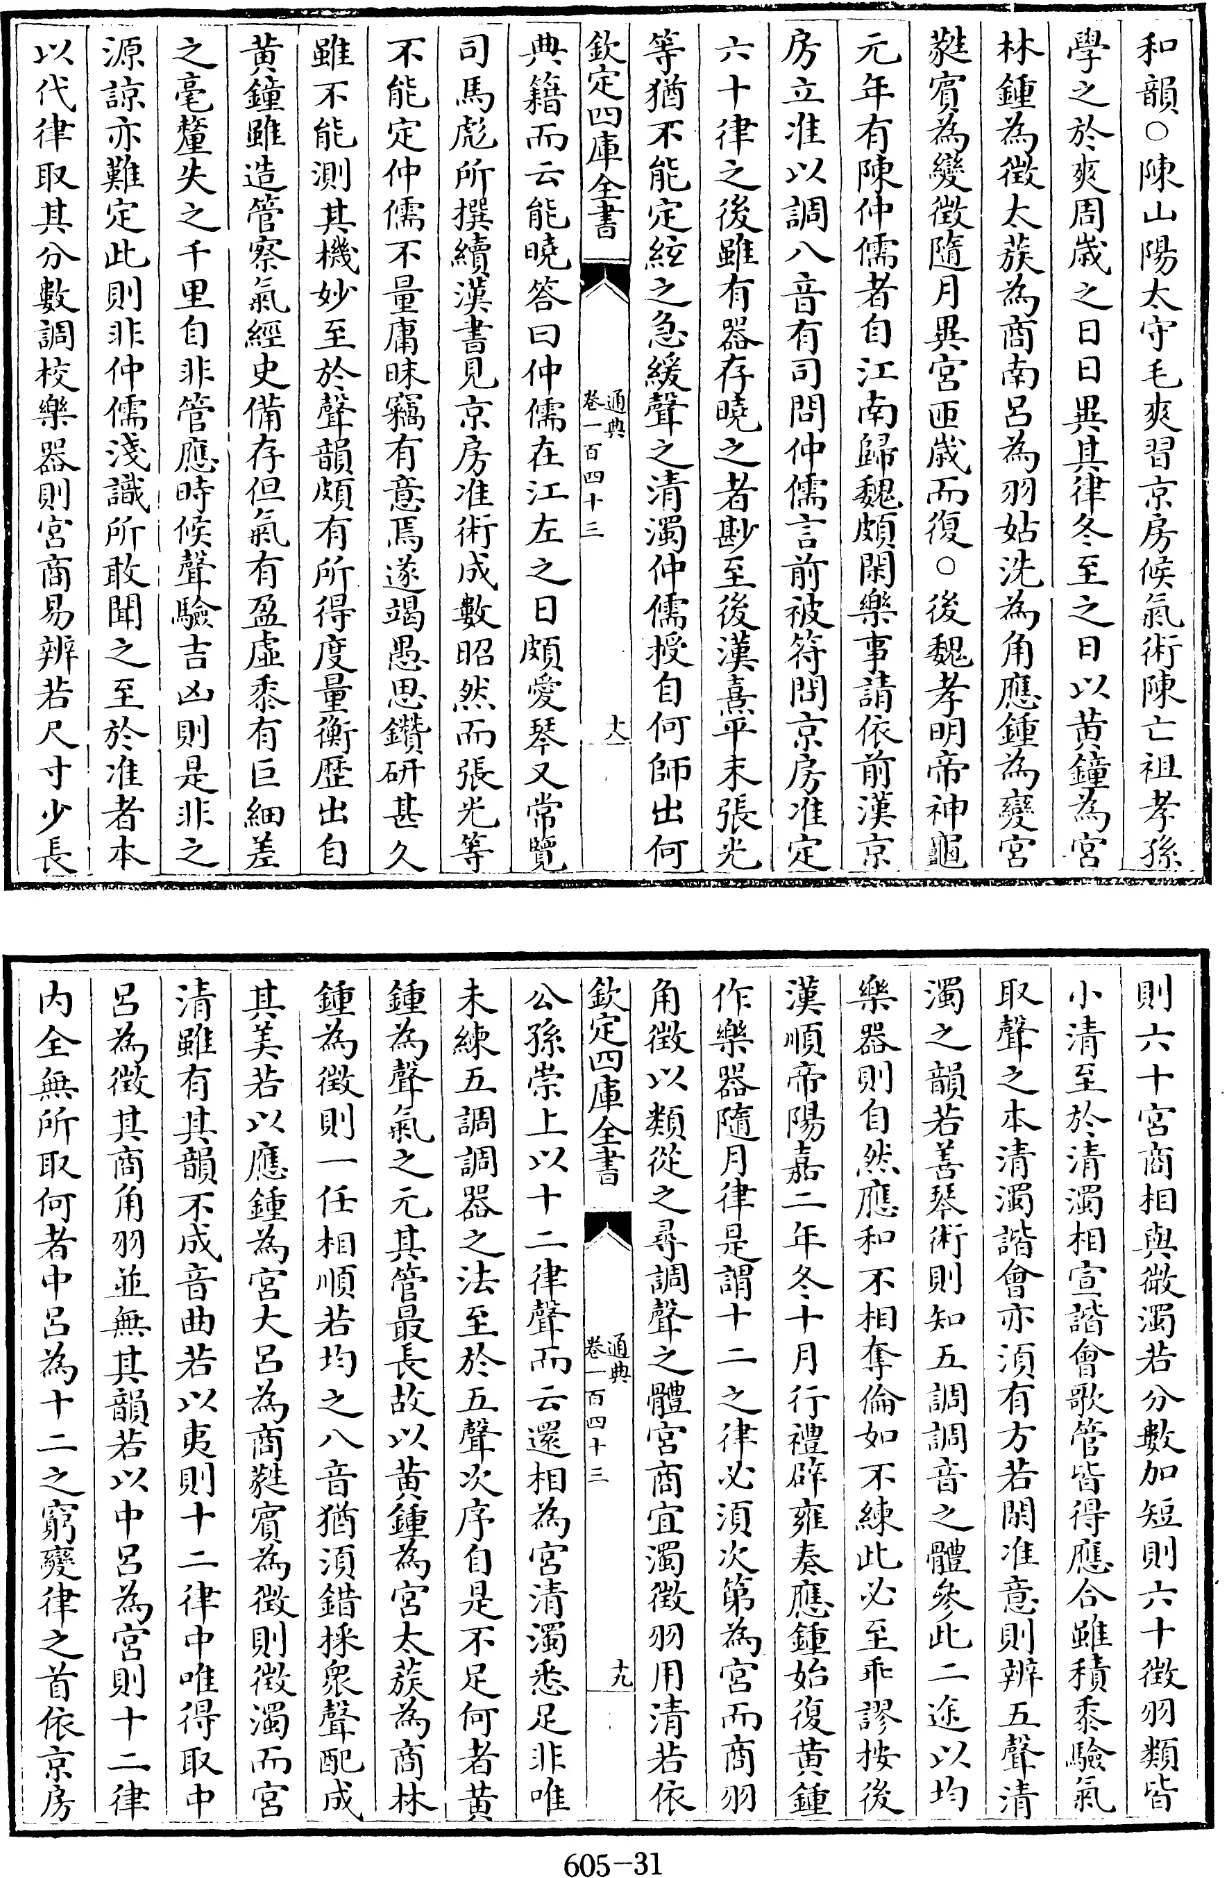 和韻○陳山陽太守毛爽習京房候氣術陳亡祖孝孫
學之於爽周歲之日日異其律冬至之日以黃鐘為宮
林鍾為徵太蔟為商南呂為羽姑洗為角應鍾為變宮
蕤賓為變徵隨月異宮匝歲而復○後魏孝明帝神龜
元年有陳仲儒者自江南歸魏頗閑樂事請依前漢京
房立准以調八音有司問仲儒言前被符問京房准定
六十律之後雖有器存曉之者尠至後漢熹平末張光
等猶不能定絃之急緩聲之清濁仲儒授自何師出何
欽定四庫全書
通典
卷一百四十三
大
典籍而云能曉答曰仲儒在江左之日頗愛琴又常覽
司馬彪所撰續漢書見京房准術成數昭然而張光等
不能定仲儒不量庸昧竊有意焉遂竭愚思鑽研甚久
雖不能測其機妙至於聲韻頗有所得度量衡歷出自
黃鐘雖造管察氣經史備存但氣有盈虛黍有巨細差
之毫釐失之千里自非管應時候聲驗吉凶則是非之
源諒亦難定此則非仲儒淺識所敢聞之至於准者本
以代律取其分數調校樂器則宮商易辨若尺寸少長
則六十宮商相與微濁若分數加短則六十徵羽類皆
小清至於清濁相宣諧會歌管皆得應合雖積黍驗氣
取聲之本清濁諧會亦須有方若閑准意則辨五聲清
濁之韻若善琴術則知五調調音之體參此二途以均
樂器則自然應和不相奪倫如不練此必至乖謬按後
漢順帝陽嘉二年冬十月行禮辟雍奏應鍾始復黃鍾
作樂器隨月律是謂十二之律必須次第為宮而商羽
角徵以類從之尋調聲之體宮商宜濁徵羽用清若依
欽定四庫全書
通典
卷一百四十三
十九
公孫崇上以十二律聲而云還相為宮清濁悉足非唯
未練五調調器之法至於五聲次序自是不足何者黃
鍾為聲氣之元其管最長故以黃鍾為宮太蔟為商林
鍾為徵則一任相順若均之八音猶須錯採衆聲配成
其美若以應鍾為宮大呂為商蕤賓為徵則徵濁而宮
清雖有其韻不成音曲若以夷則十二律中唯得取中
呂為徵其商角羽並無其韻若以中呂為宮則十二律
內全無所取何者中呂為十二之窮變律之首依京房
605-31